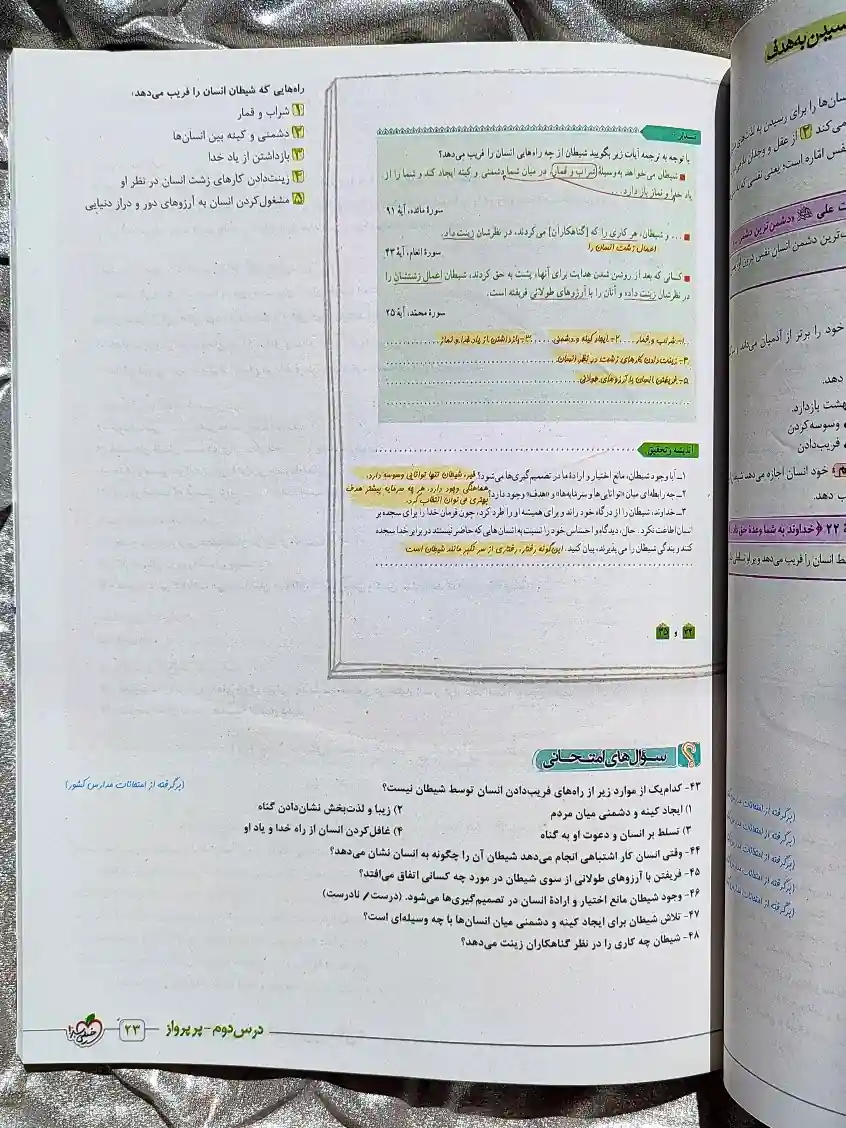 راه‌هایی که شیطان انسان را فریب می‌دهد:
۱ شراب و قمار
۲ دشمنی و کینه بین انسان‌ها
۳ بازداشتن از یاد خدا
۴ زینت‌دادن کارهای زشت انسان در نظر او
۵ مشغول‌کردن انسان به آرزوهای دور و دراز دنیایی
با توجه به ترجمه آیات زیر بگویید شیطان از چه راه‌هایی انسان را فریب می‌دهد؟
شیطان می‌خواهد به وسیلهٔ شراب و قمار، در میان شما دشمنی و کینه ایجاد کند و شما را از
یاد خدا و نماز باز دارد...
سورهٔ مائده، آیهٔ ۹۱
... و شیطان، هر کاری را که [گناهکاران] می‌کردند، در نظرشان زینت داد.
اعمال زشت انسان را
سورهٔ انعام، آیهٔ ۴۳
کسانی که بعد از روشن شدن هدایت برای آنها، پشت به حق کردند، شیطان اعمال زشتشان را
در نظرشان زینت داده و آنان را با آرزوهای طولانی فریفته است.
سورهٔ محمد، آیهٔ ۲۵
۱- شراب و قمار ... ۲- ایجاد کینه و دشمنی ... ۳- بازداشتن از یاد خدا و نماز
۴- زینت دادن کارهای زشت در نظر انسان
۵- فریفتن انسان با آرزوهای طولانی
اندیشه و تحقیق
۱ــ آیا وجود شیطان، مانع اختیار و ارادهٔ ما در تصمیم گیری‌ها می‌شود؟ خیر، شیطان تنها توانایی وسوسه دارد.
۲ــ چه رابطه‌ای میان «توانایی‌ها و سرمایه‌ها» و «هدف» وجود دارد؟ هماهنگی وجود دارد، هر چه سرمایه بیشتر هدف
بهتری می‌توان انتخاب کرد.
۳ــ خداوند، شیطان را از درگاه خود راند و برای همیشه او را طرد کرد، چون فرمان خدا را برای سجده بر
انسان اطاعت نکرد. حال، دیدگاه و احساس خود را نسبت به انسان‌هایی که حاضر نیستند در برابر خدا سجده
کنند و بندگی شیطان را می‌پذیرند، بیان کنید. این‌گونه رفتار، رفتاری از سر تکبر مانند شیطان است
سؤال‌های امتحانی
۴۳- کدام‌یک از موارد زیر از راه‌های فریب‌دادن انسان توسط شیطان نیست؟
(برگرفته از امتحانات مدارس کشور)
۱) ایجاد کینه و دشمنی میان مردم
۲) زیبا و لذت‌بخش نشان‌دادن گناه
۳) تسلط بر انسان و دعوت او به گناه
۴) غافل‌کردن انسان از راه خدا و یاد او
۴۴- وقتی انسان کار اشتباهی انجام می‌دهد شیطان آن را چگونه به انسان نشان می‌دهد؟
۴۵- فریفتن با آرزوهای طولانی از سوی شیطان در مورد چه کسانی اتفاق می‌افتد؟
۴۶- وجود شیطان مانع اختیار و ارادهٔ انسان در تصمیم‌گیری‌ها می‌شود. (درست / نادرست)
۴۷- تلاش شیطان برای ایجاد کینه و دشمنی میان انسان‌ها با چه وسیله‌ای است؟
۴۸- شیطان چه کاری را در نظر گناهکاران زینت می‌دهد؟
درس دوم - پر پرواز
۲۳